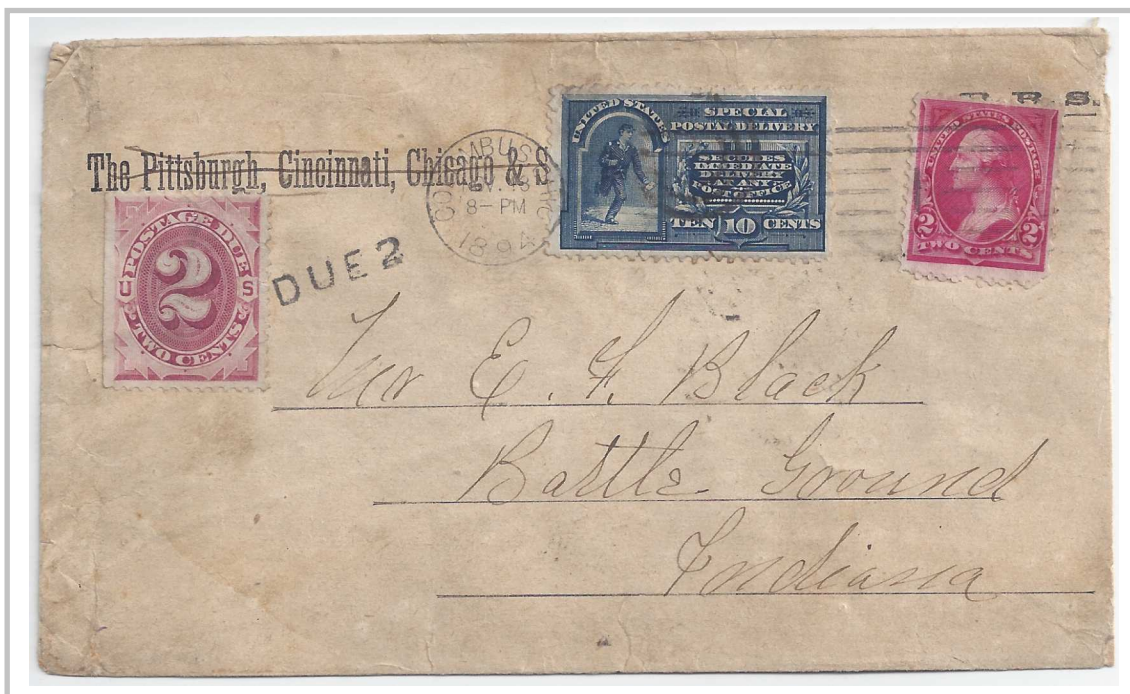 R. R. S.
The Pittsburgh, Cincinnati, Chicago & S
COLUMBUS
NOV. 13
8-PM
1894
UNITED STATES
SPECIAL
POSTAL DELIVERY
SECURES
IMMEDIATE
DELIVERY
AT ANY
POST OFFICE
TEN 10 CENTS
UNITED STATES POSTAGE
2 2
TWO CENTS
POSTAGE DUE
U 2 S
TWO CENTS
DUE 2
Mr E. F. Black
Battle Ground
Indiana